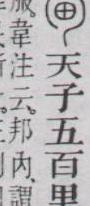 天子五百里
服韋注云邦內謂